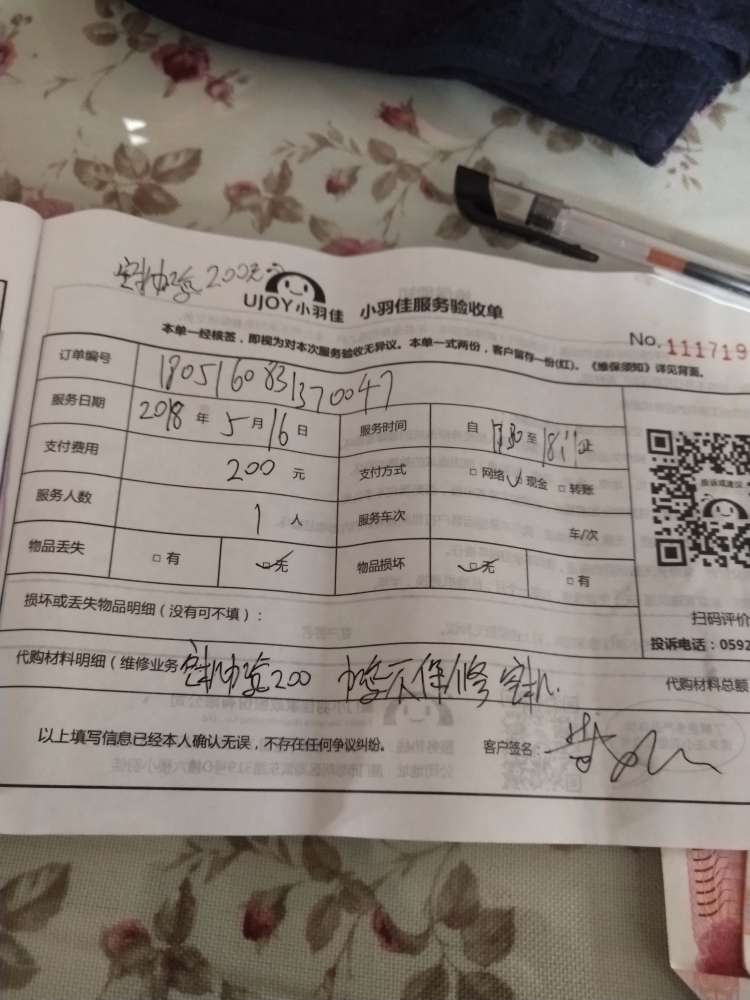 200元
UJOY小羽佳 小羽佳服务验收单
No. 111719
本单一经核签，即视为对本次服务验收无异议。本单一式两份，客户留存一份(红)。《维保须知》详见背面。
订单编号 1805160831370047
服务日期 2018 年 5 月 16 日 服务时间 自 至 止
支付费用 200 元 支付方式 □ 网络 现金 □ 转账
服务人数 1 人 服务车次 车/次
物品丢失 □ 有 □ 无 物品损坏 □ 无 □ 有
投诉或建议
扫码评价
损坏或丢失物品明细（没有可不填）：
投诉电话：0592
代购材料明细（维修业务 200 不保修
代购材料总额
以上填写信息已经本人确认无误，不存在任何争议纠纷。 客户签名：